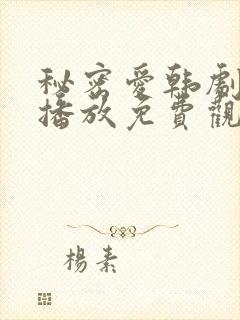 秘密愛韩劇
播放免費觀
楊素